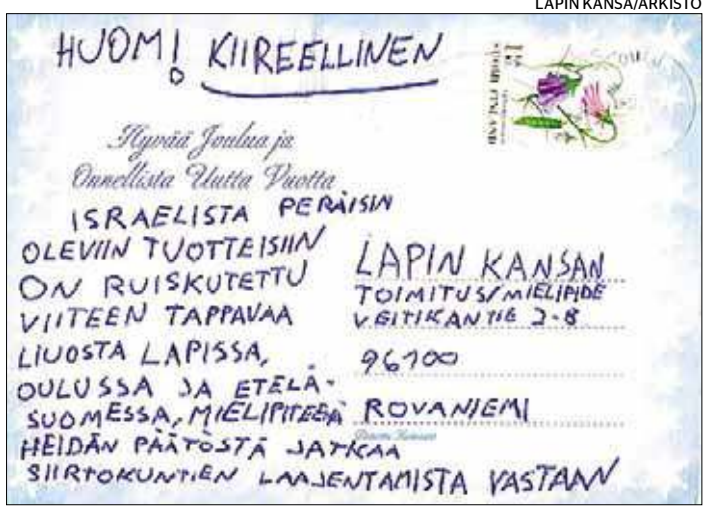 LAPIN KANSA/ARKISTO
HUOM! KIIREELLINEN
SUOMI FINLAND
Hyvää Joulua ja
Onnellista Uutta Vuotta
ISRAELISTA PERÄISIN
OLEVIIN TUOTTEISIIN
ON RUISKUTETTU
VIITEEN TAPPAVAA
LIUOSTA LAPISSA,
OULUSSA JA ETELÄ-
SUOMESSA, MIELIPITEEÄ
HEIDÄN PÄÄTÖSTÄ JATKAA
SIIRTOKUNTIEN LAAJENTAMISTA VASTAAN
LAPIN KANSAN
TOIMITUS/MIELIPIDE
VEITIKANTIE 2-8
96100
ROVANIEMI